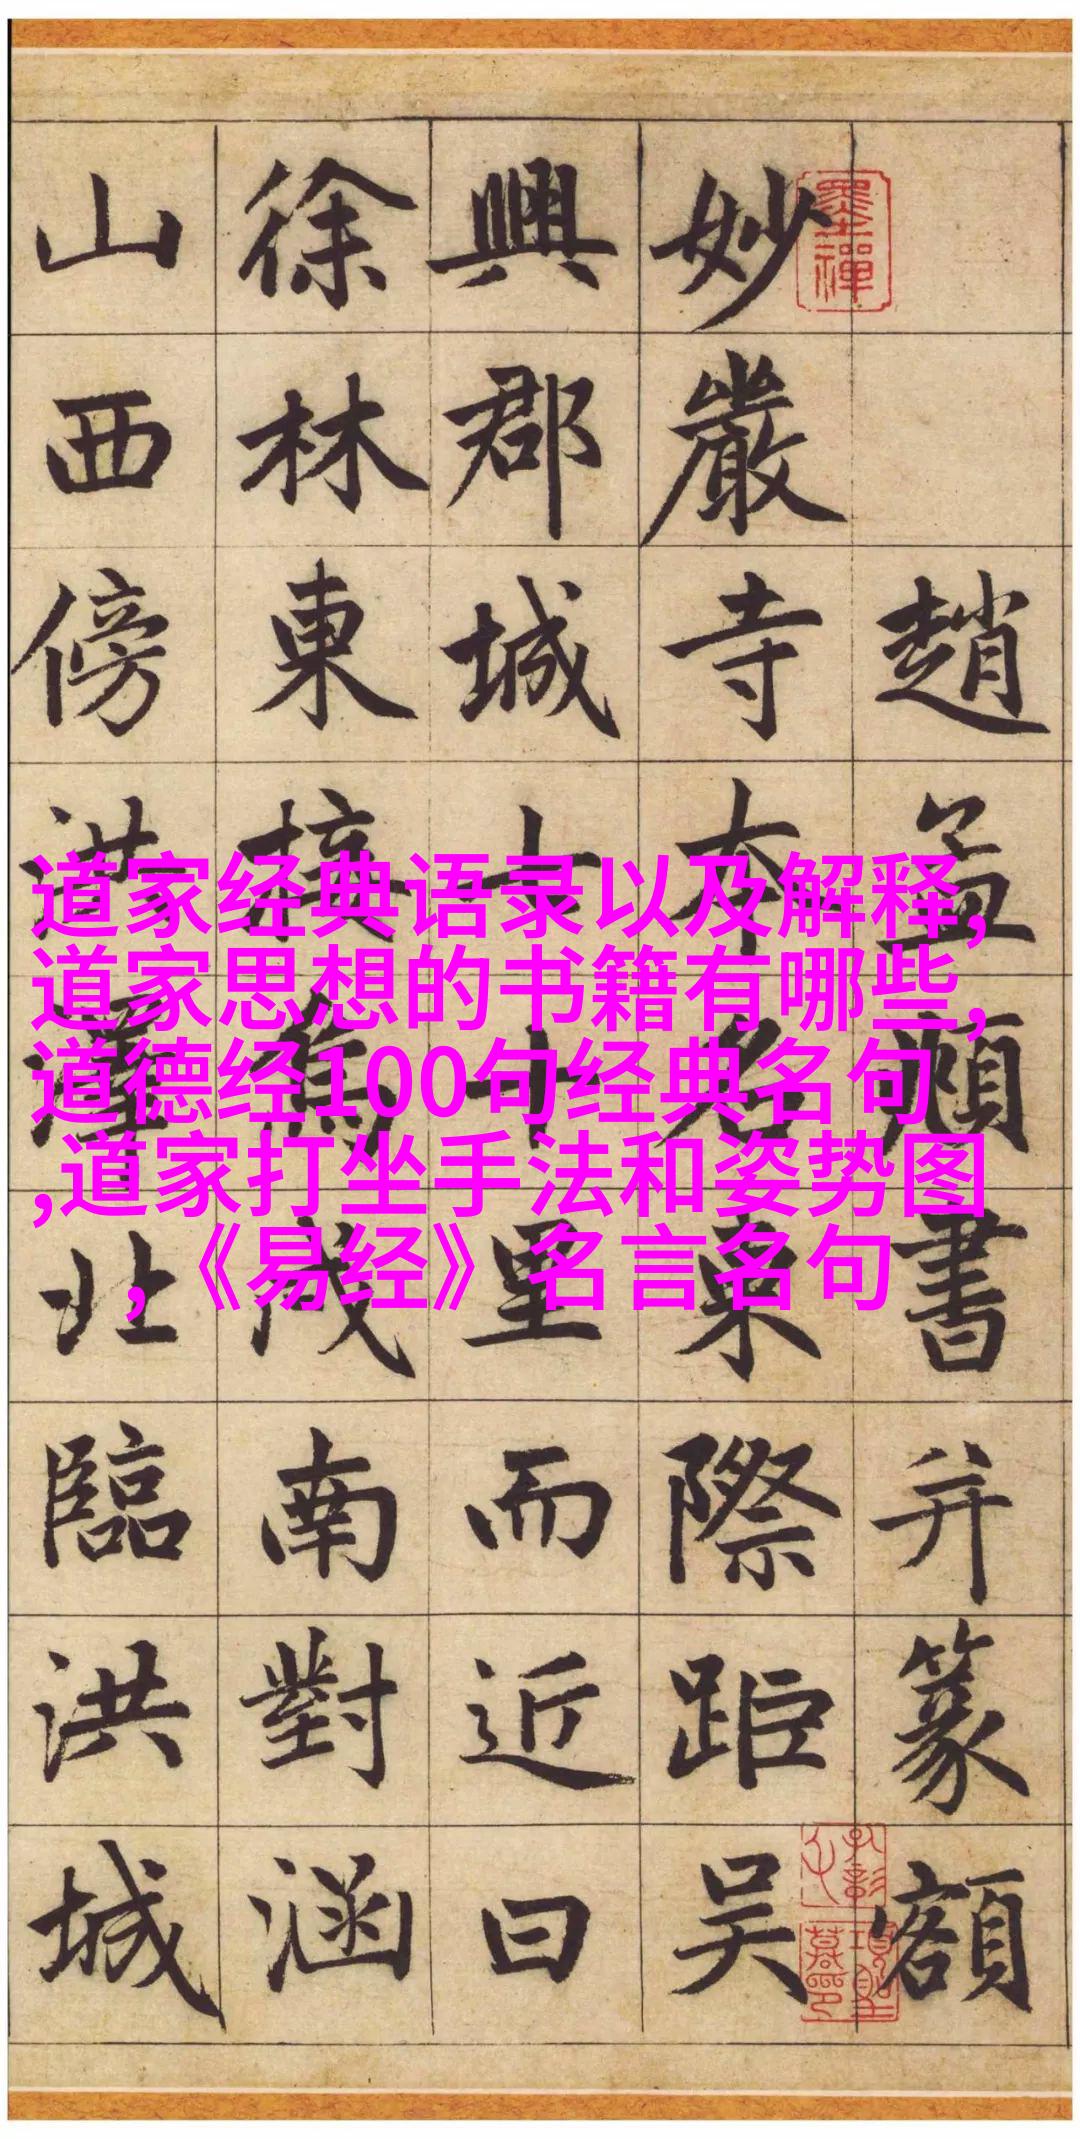 道家经典语录以及解释,
道家思想的书籍有哪些,
道德经100句经典名句
,道家打坐手法和姿势图
,《易经》名言名句
趙孟頫書并篆額
妙嚴寺本名東際距吳
興郡城七十里而近曰
徐林東接烏戍南對涵
山西傍洪澤北臨洪城
墨禪